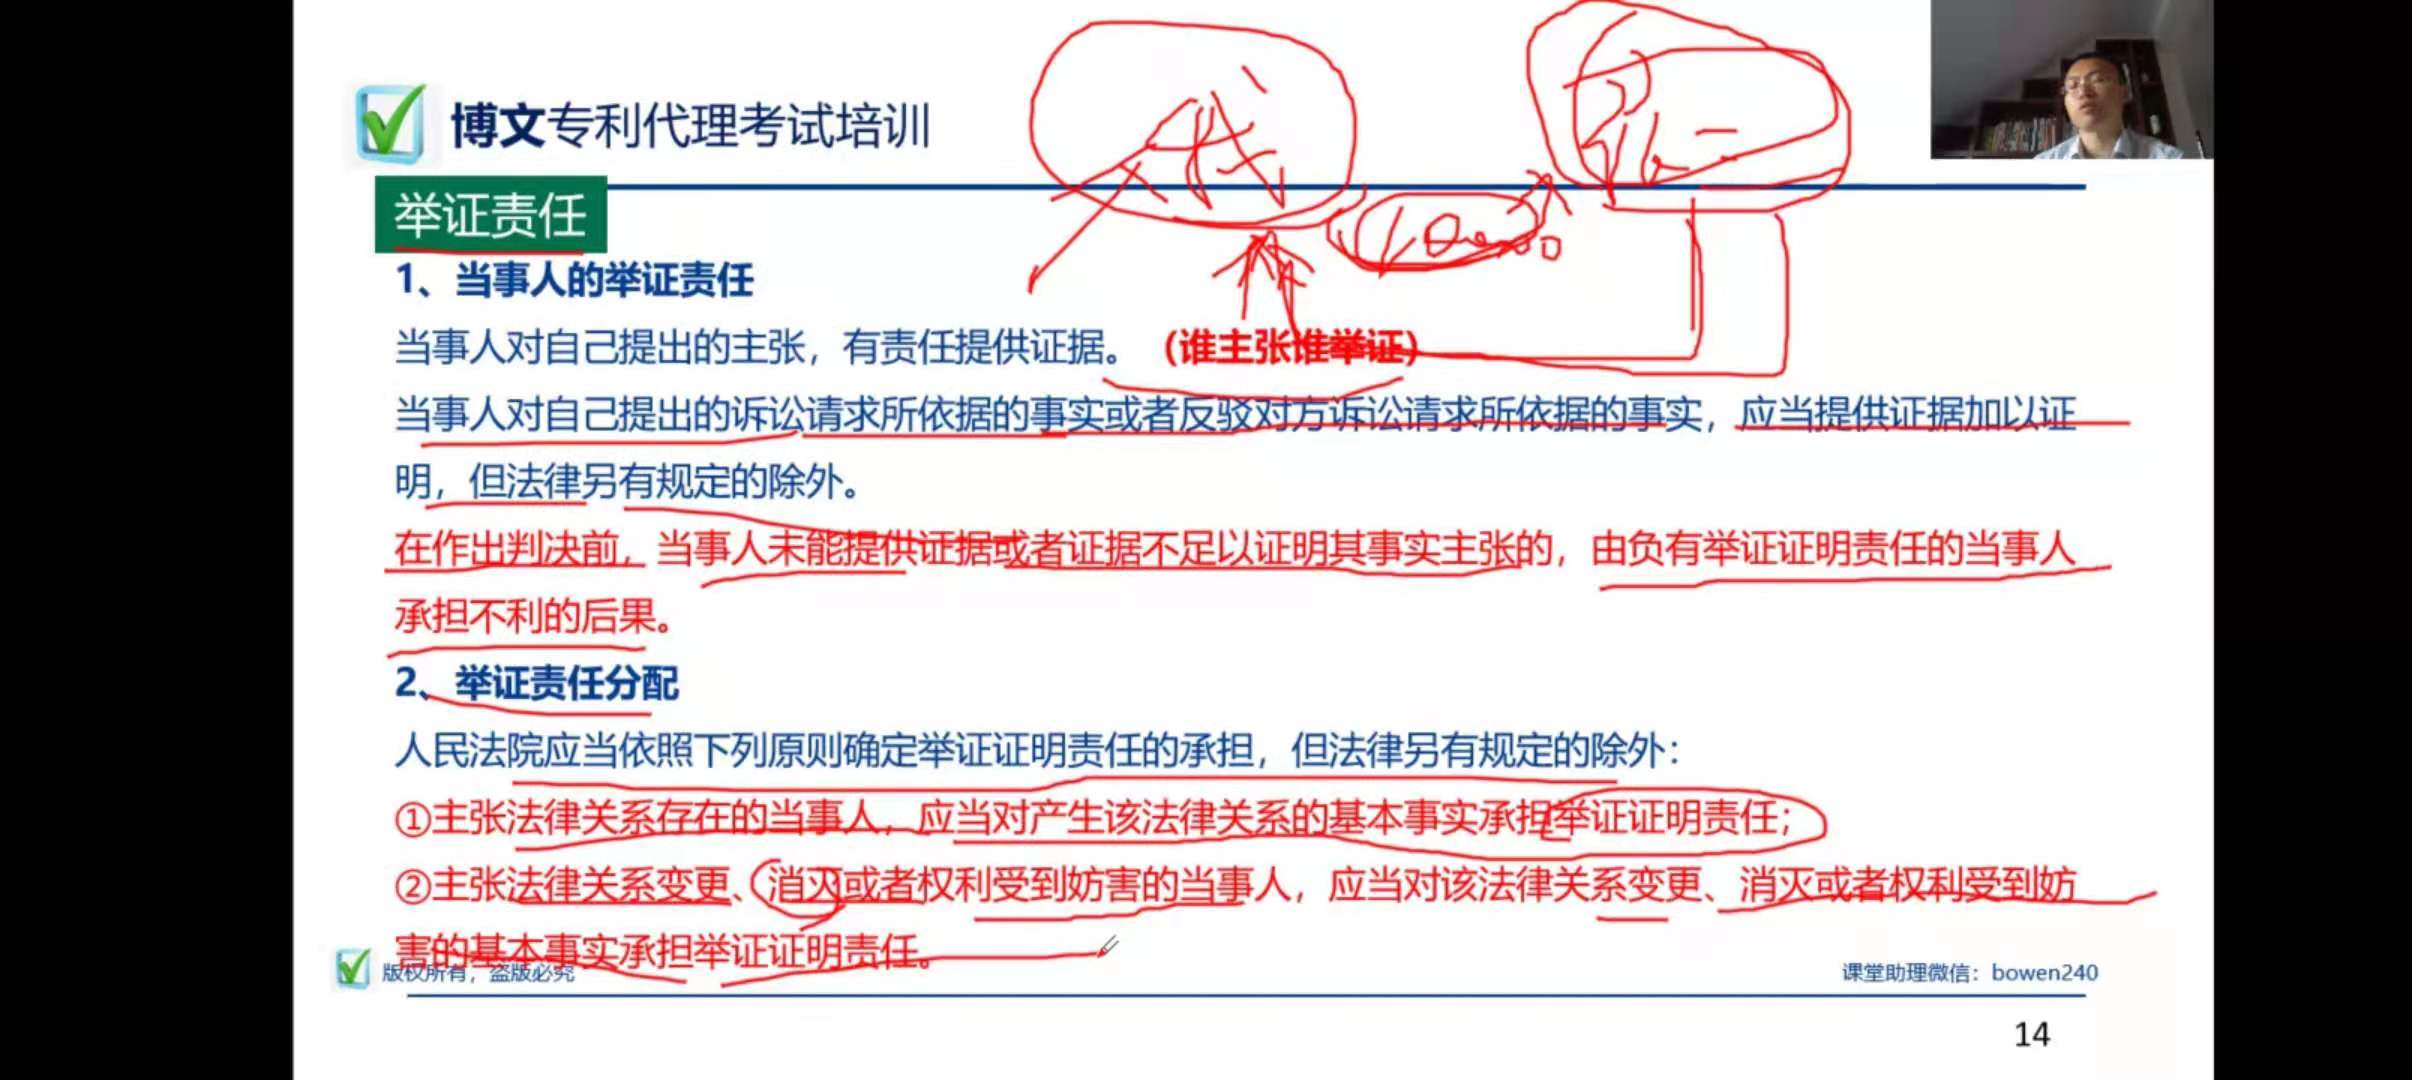 博文专利代理考试培训
举证责任
1、当事人的举证责任
当事人对自己提出的主张，有责任提供证据。（谁主张谁举证）
当事人对自己提出的诉讼请求所依据的事实或者反驳对方诉讼请求所依据的事实，应当提供证据加以证
明，但法律另有规定的除外。
在作出判决前，当事人未能提供证据或者证据不足以证明其事实主张的，由负有举证证明责任的当事人
承担不利的后果。
2、举证责任分配
人民法院应当依照下列原则确定举证证明责任的承担，但法律另有规定的除外：
①主张法律关系存在的当事人，应当对产生该法律关系的基本事实承担举证证明责任；
②主张法律关系变更、消灭或者权利受到妨害的当事人，应当对该法律关系变更、消灭或者权利受到妨
害的基本事实承担举证证明责任。
版权所有，盗版必究
课堂助理微信：bowen240
14